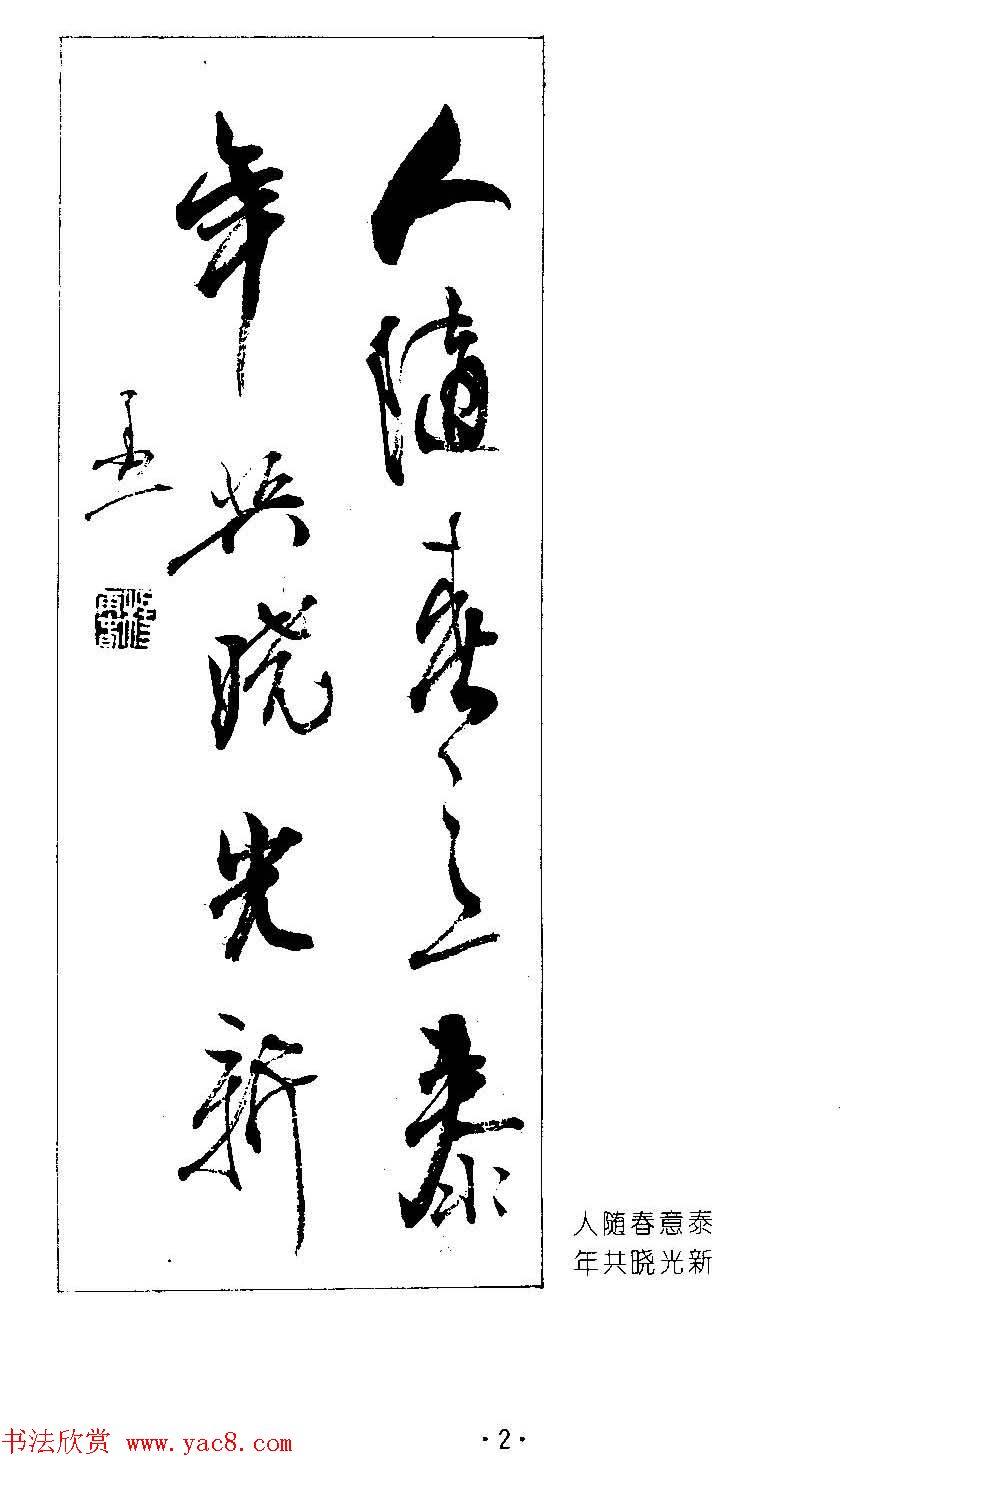 人随春意泰
年共晓光新
人随春意泰
年共晓光新
·2·
书法欣赏 www.yac8.com